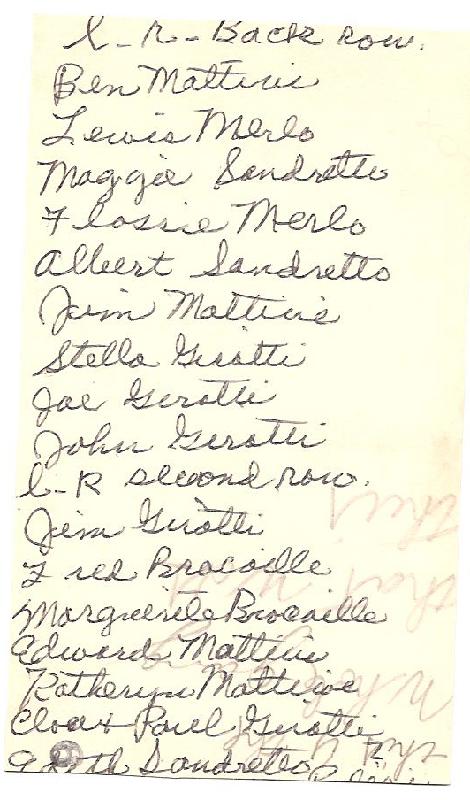 l-r-Back row.
Ben Mattivi
Lewis Merlo
Maggie Sandretto
Flossie Merlo
Albert Sandretto
Jim Mattivi
Stella Girotti
Joe Girotti
John Girotti
l-R second row.
Jim Girotti
Fred Brocaille
Marguerite Brocaille
Edward Mattivi
Katheryn
Paul Girotti
Sandretto